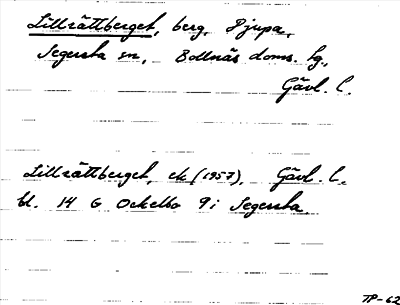 Lillrättberget, berg, Djupa,
Segersta sn, Bollnäs doms. hg.,
Gävl. l.
Lillrättberget, ek (1957), Gävl. l.
bl. 14 G Ockelbo 9i Segersta
TP-62